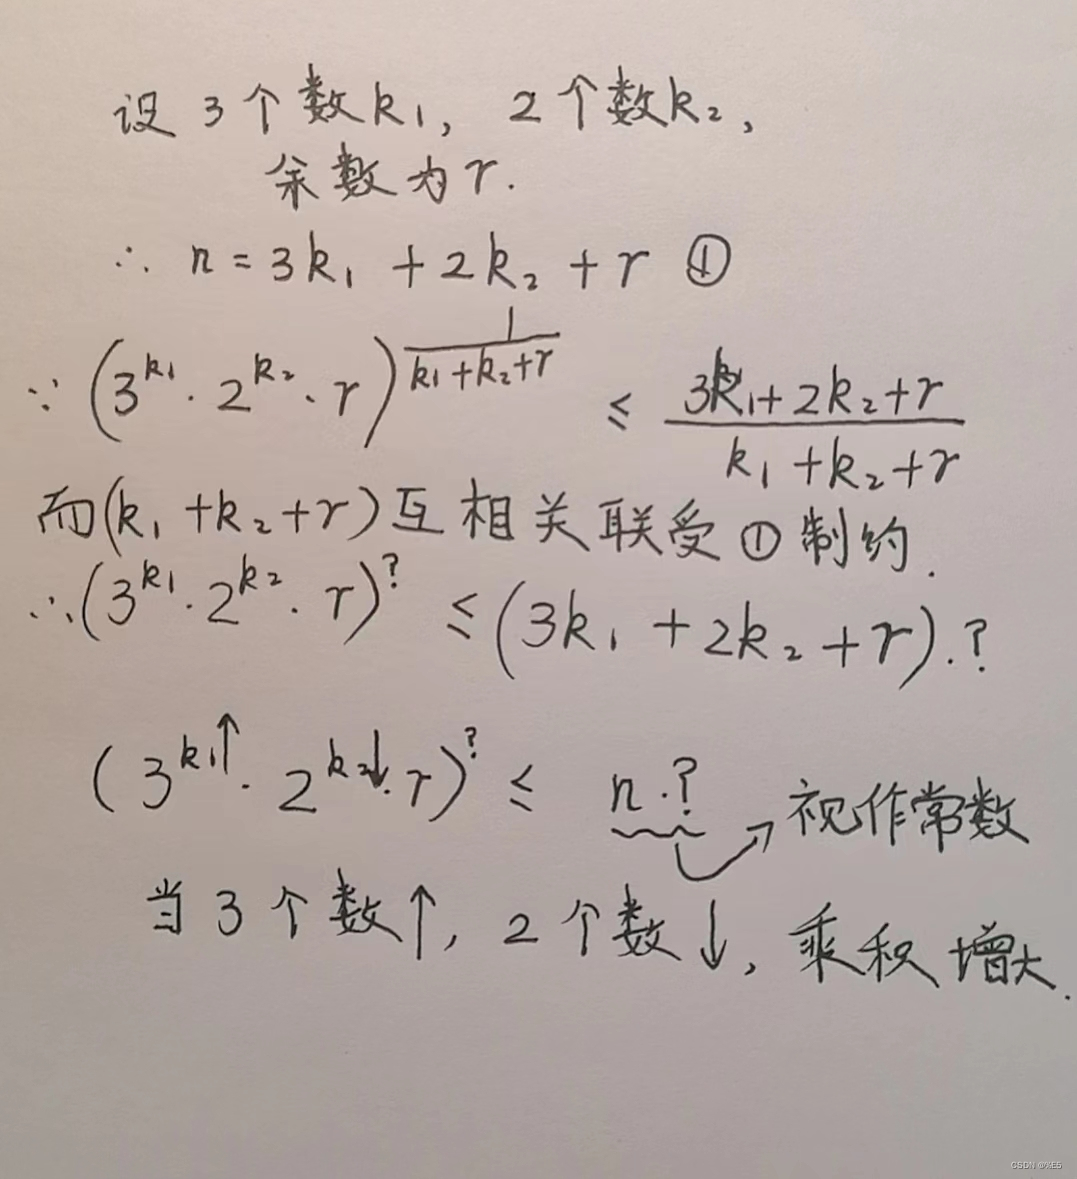 设 3 个数 k₁, 2 个数 k₂,
余数为 r.
∴ n = 3k₁ + 2k₂ + r ①
∵ (3^{k₁} · 2^{k₂} · r)^{\frac{1}{k₁+k₂+r}} ≤ \frac{3k₁+2k₂+r}{k₁+k₂+r}
而(k₁+k₂+r)互相关联受①制约.
∴(3^{k₁} · 2^{k₂} · r)^? ≤ (3k₁ + 2k₂ + r).?
(3^{k₁↑} · 2^{k₂↓} · r)^? ≤ n.? → 视作常数
当 3 个数↑, 2 个数↓, 乘积增大.